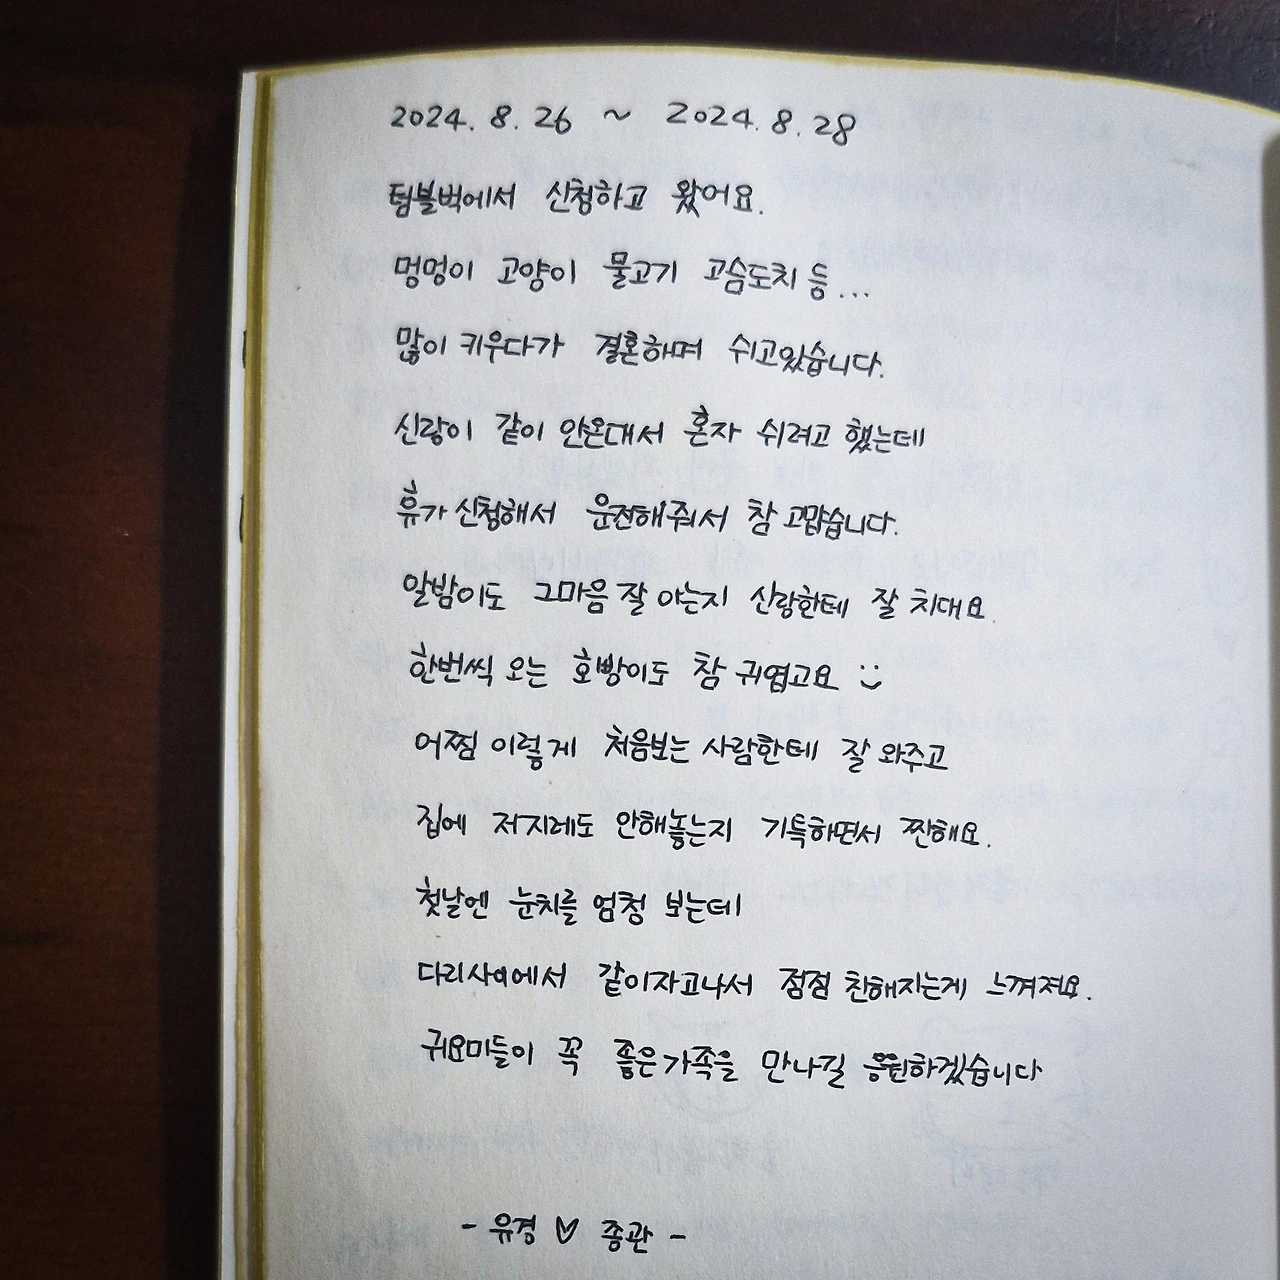 2024. 8. 26 ~ 2024. 8. 28
텀블벅에서 신청하고 왔어요.
멍멍이 고양이 물고기 고슴도치 등...
많이 키우다가 결혼하며 쉬고있습니다.
신랑이 같이 안온대서 혼자 쉬려고 했는데
휴가 신청해서 운전해줘서 참 고맙습니다.
알밤이도 그마음 잘 아는지 신랑한테 잘 치대요.
한번씩 오는 호빵이도 참 귀엽고요 :)
어쩜 이렇게 처음보는 사람한테 잘 와주고
집에 저지레도 안해놓는지 기특하면서 찐해요.
첫날엔 눈치를 엄청 보는데
다리사이에서 같이자고나서 점점 친해지는게 느껴져요.
귀요미들이 꼭 좋은가족을 만나길 응원하겠습니다
- 유경 ♡ 종관 -